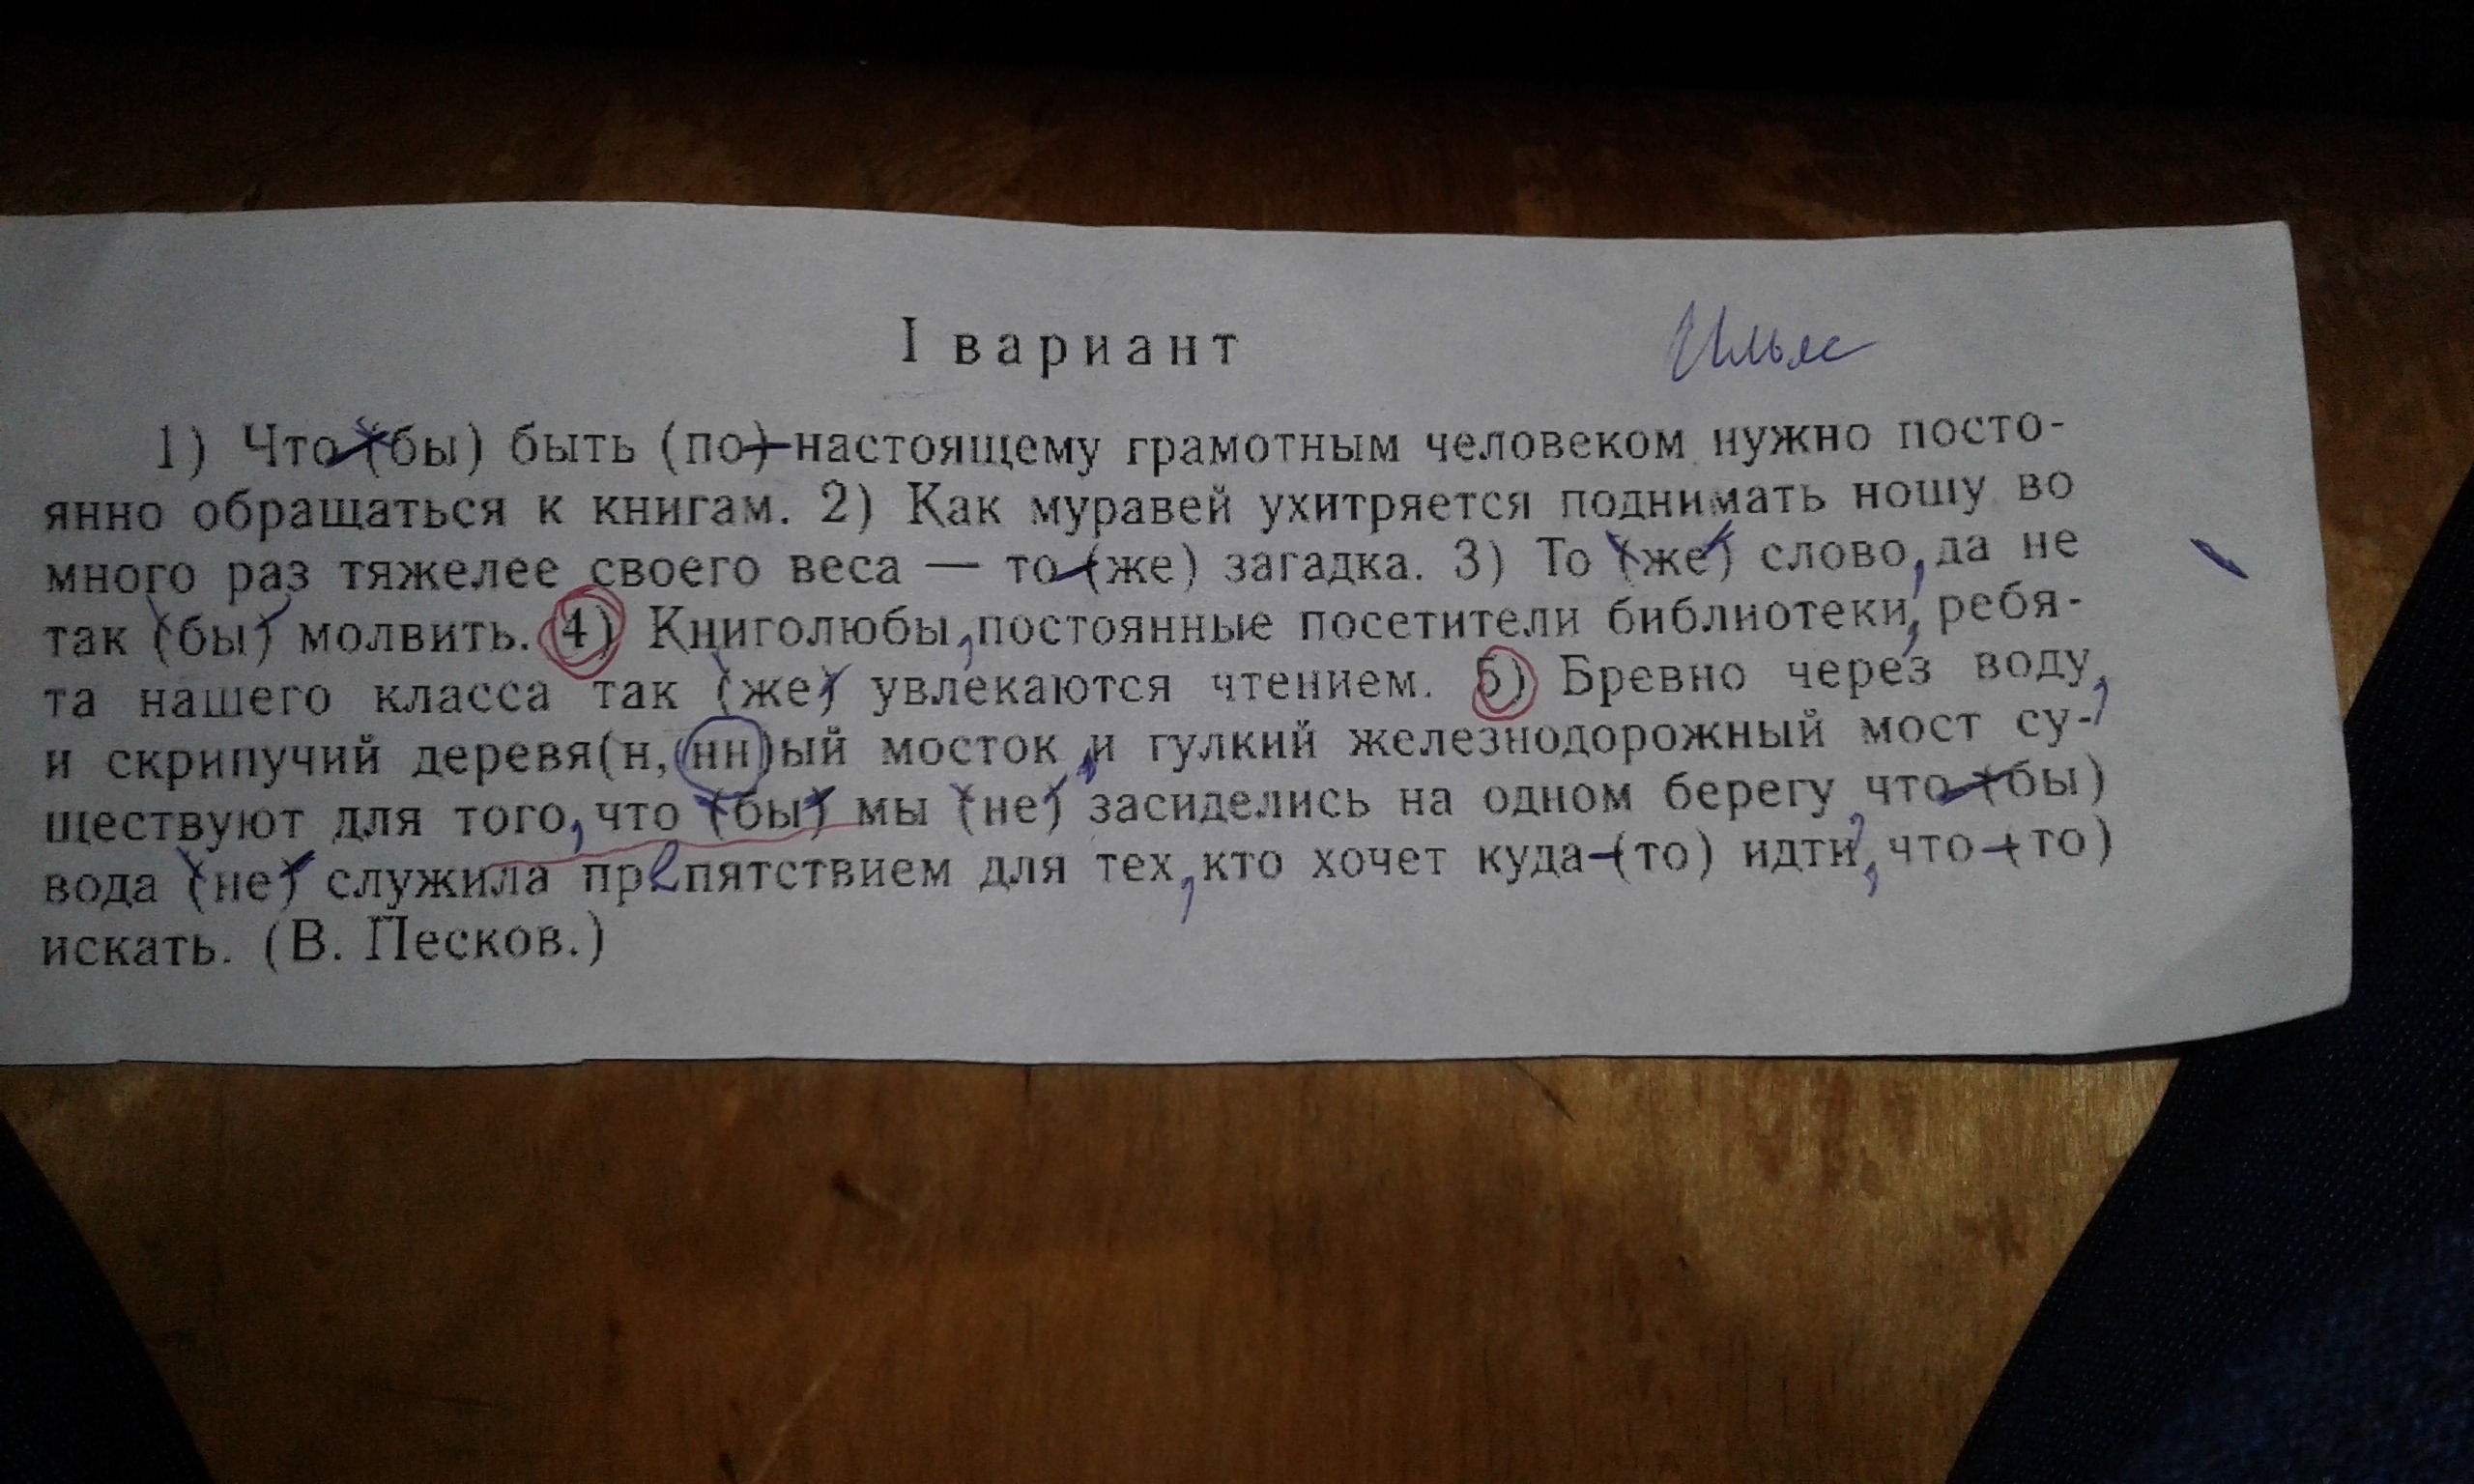 I вариант Ильяс
1) Что (бы) быть (по)-настоящему грамотным человеком нужно посто-
янно обращаться к книгам. 2) Как муравей ухитряется поднимать ношу во
много раз тяжелее своего веса — то-(же) загадка. 3) То (же) слово, да не
так (бы) молвить. 4) Книголюбы, постоянные посетители библиотеки, ребя-
та нашего класса так (же) увлекаются чтением. 5) Бревно через воду,
и скрипучий деревя(н, нн)ый мосток, и гулкий железнодорожный мост су-
ществуют для того, что (бы) мы (не) засиделись на одном берегу, что-(бы)
вода (не) служила препятствием для тех, кто хочет куда-(то) идти, что-(то)
искать. (В. Песков.)